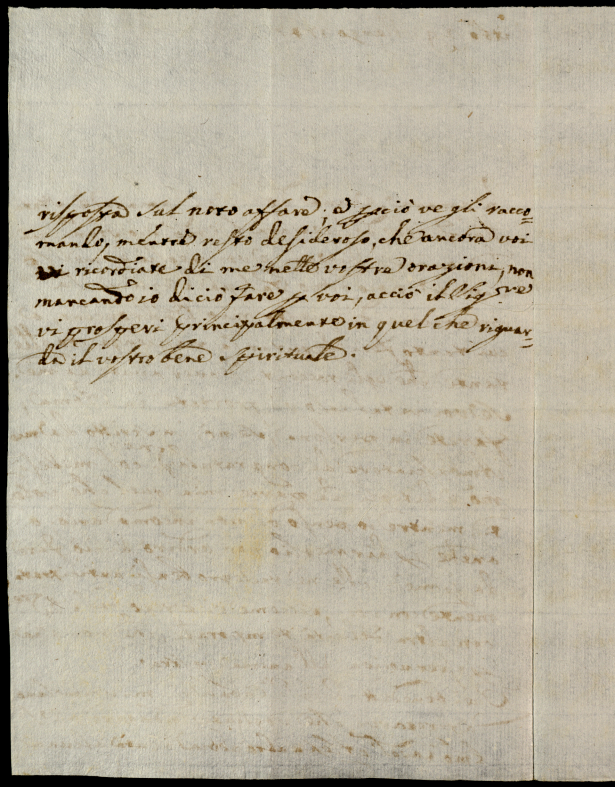 risposta sul noto affare; e p ciò ve gli racco=
mando, mentre resto desideroso, che ancora voi
vi ricordiate di me nelle vostre orazioni, non
mancando io di ciò fare p voi, acciò il Sig.re
vi prosperi principalmente in quel che riguar=
da il vostro bene spirituale.